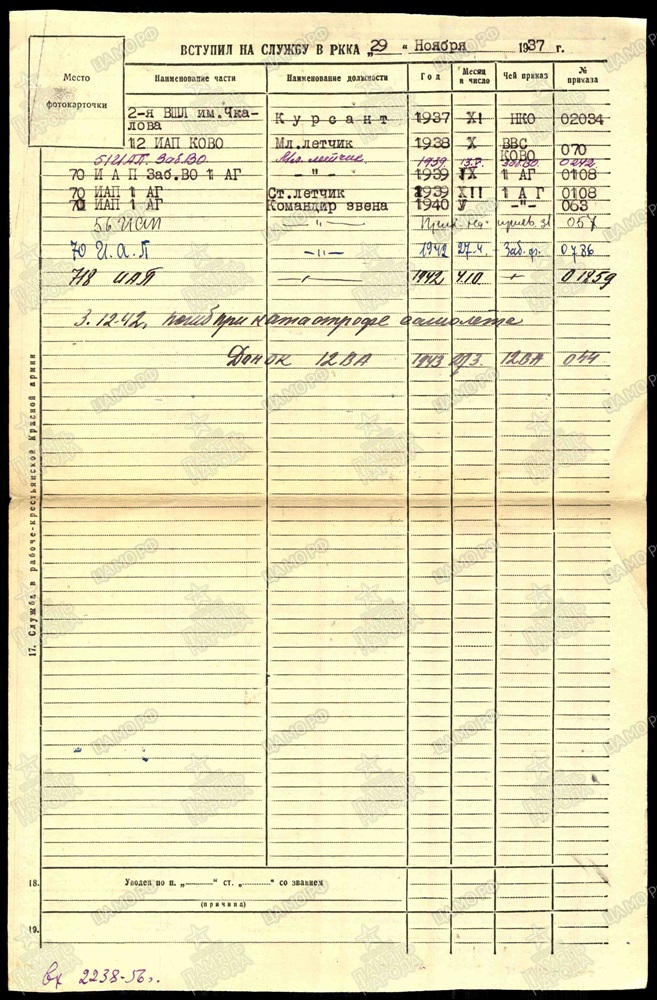 ВСТУПИЛ НА СЛУЖБУ В РККА „29“ Ноября 1937 г.
Место фотокарточки
Наименование части Наименование должности Год Месяц и число Чей приказ № приказа
2-я ВШЛ им.Чкалова Курсант 1937 XI НКО 02034
12 ИАП КОВО Мл.летчик 1938 X ВВС КОВО 070
51 ИАП. Заб.ВО Мл. летчик 1939 Заб.ВО 0242
70 И А П Заб.ВО 1 АГ -"- 1939 IX 1 АГ 0108
70 ИАП 1 АГ Ст.летчик 1939 XII 1 А Г 0108
70 ИАП 1 АГ Командир звена 1940 У -"- 063
56 ИАП -"- 057
70 И.А.П -"- 1942 27.4. Заб.ф. 0786
718 ИАП -"- 1942 4.10 -"- 01259
3.12.42. погиб при катастрофе самолета
Донок 12 ВА 1943 12ВА 044
17. Служба в рабоче-крестьянской Красной армии
18. Уволен по п. „ “ ст. „ “ со званием
(причина)
19.
вх 2238-56г.
ЦАМО РФ
ПАМЯТЬ НАРОДА